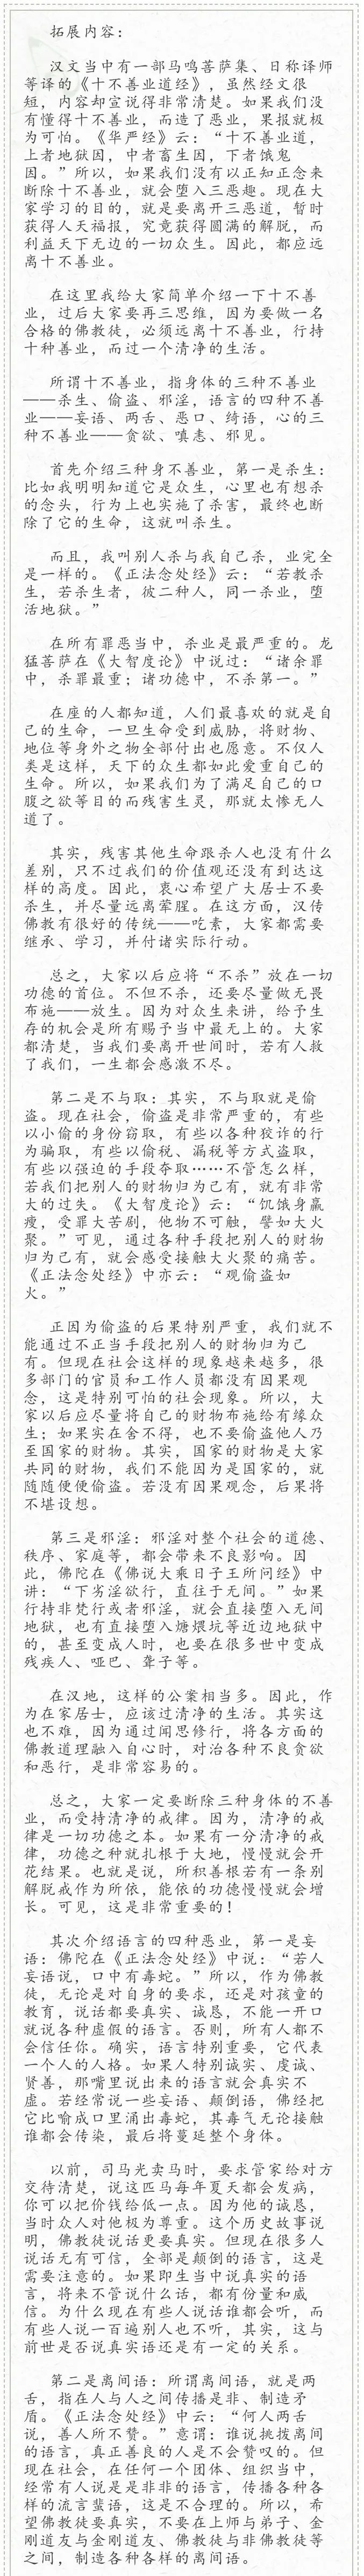 拓展内容：
汉文当中有一部马鸣菩萨集、日称译师
等译的《十不善业道经》，虽然经文很
短，内容却宣说得非常清楚。如果我们没
有懂得十不善业，而造了恶业，果报就极
为可怕。《华严经》云：“十不善业道，
上者地狱因，中者畜生因，下者饿鬼
因。”所以，如果我们没有以正知正念来
断除十不善业，就会堕入三恶趣。现在大
家学习的目的，就是要离开三恶道，暂时
获得人天福报，究竟获得圆满的解脱，而
利益天下无边的一切众生。因此，都应远
离十不善业。
在这里我给大家简单介绍一下十不善
业，过后大家要再三思维，因为要做一名
合格的佛教徒，必须远离十不善业，行持
十种善业，而过一个清净的生活。
所谓十不善业，指身体的三种不善业
——杀生、偷盗、邪淫，语言的四种不善
业——妄语、两舌、恶口、绮语，心的三
种不善业——贪欲、嗔恚、邪见。
首先介绍三种身不善业，第一是杀生：
比如我明明知道它是众生，心里也有想杀
的念头，行为上也实施了杀害，最终也断
除了它的生命，这就叫杀生。
而且，我叫别人杀与我自己杀，业完全
是一样的。《正法念处经》云：“若教杀
生，若杀生者，彼二种人，同一杀业，堕
活地狱。”
在所有罪恶当中，杀业是最严重的。龙
猛菩萨在《大智度论》中说过：“诸余罪
中，杀罪最重；诸功德中，不杀第一。”
在座的人都知道，人们最喜欢的就是自
己的生命，一旦生命受到威胁，将财物、
地位等身外之物全部付出也愿意。不仅人
类是这样，天下的众生都如此爱重自己的
生命。所以，如果我们为了满足自己的口
腹之欲等目的而残害生灵，那就太惨无人
道了。
其实，残害其他生命跟杀人也没有什么
差别，只不过我们的价值观还没有到达这
样的高度。因此，衷心希望广大居士不要
杀生，并尽量远离荤腥。在这方面，汉传
佛教有很好的传统——吃素，大家都需要
继承、学习，并付诸实际行动。
总之，大家以后应将“不杀”放在一切
功德的首位。不但不杀，还要尽量做无畏
布施——放生。因为对众生来讲，给予生
存的机会是所有赐予当中最无上的。大家
都清楚，当我们要离开世间时，若有人救
了我们，一生都会感激不尽。
第二是不与取：其实，不与取就是偷
盗。现在社会，偷盗是非常严重的，有些
以小偷的身份窃取，有些以各种狡诈的行
为骗取，有些以偷税、漏税等方式盗取，
有些以强迫的手段夺取……不管怎么样，
若我们把别人的财物归为己有，就有非常
大的过失。《大智度论》云：“饥饿身羸
瘦，受罪大苦剧，他物不可触，譬如大火
聚。”可见，通过各种手段把别人的财物
归为己有，就会感受接触大火聚的痛苦。
《正法念处经》中亦云：“观偷盗如
火。”
正因为偷盗的后果特别严重，我们就不
能通过不正当手段把别人的财物归为己
有。但现在社会这样的现象越来越多，很
多部门的官员和工作人员都没有因果观
念，这是特别可怕的社会现象。所以，大
家以后应尽量将自己的财物布施给有缘众
生；如果实在舍不得，也不要偷盗他人乃
至国家的财物。其实，国家的财物是大家
共同的财物，我们不能因为是国家的，就
随随便便偷盗。若没有因果观念，后果将
不堪设想。
第三是邪淫：邪淫对整个社会的道德、
秩序、家庭等，都会带来不良影响。因
此，佛陀在《佛说大乘日子王所问经》中
讲：“下劣淫欲行，直往于无间。”如果
行持非梵行或者邪淫，就会直接堕入无间
地狱，也有直接堕入煻煨坑等近边地狱中
的，甚至变成人时，也要在很多世中变成
残疾人、哑巴、聋子等。
在汉地，这样的公案相当多。因此，作
为在家居士，应该过清净的生活。其实这
也不难，因为通过闻思修行，将各方面的
佛教道理融入自心时，对治各种不良贪欲
和恶行，是非常容易的。
总之，大家一定要断除三种身体的不善
业，而受持清净的戒律。因为，清净的戒
律是一切功德之本。如果有一分清净的戒
律，功德之种就扎根于大地，慢慢就会开
花结果。也就是说，所积善根若有一条别
解脱戒作为所依，能依的功德慢慢就会增
长。可见，这是非常重要的！
其次介绍语言的四种恶业，第一是妄
语：佛陀在《正法念处经》中说：“若人
妄语说，口中有毒蛇。”所以，作为佛教
徒，无论是对自身的要求，还是对孩童的
教育，说话都要真实、诚恳，不能一开口
就说各种虚假的语言。否则，所有人都不
会信任你。确实，语言特别重要，它代表
一个人的人格。如果人特别诚实、虔诚、
贤善，那嘴里说出来的语言就会真实不
虚。若经常说一些妄语、颠倒语，佛经把
它比喻成口里涌出毒蛇，其毒气无论接触
谁都会传染，最后将蔓延整个身体。
以前，司马光卖马时，要求管家给对方
交待清楚，说这匹马每年夏天都会发病，
你可以把价钱给低一点。因为他的诚恳，
当时众人对他极为尊重。这个历史故事说
明，佛教徒说话更要真实。但现在很多人
说话无有可信，全部是颠倒的语言，这是
需要注意的。如果即生当中说真实的语
言，将来不管说什么话，都有份量和威
信。为什么现在有些人说话谁都会听，而
有些人说一百遍别人也不听，其实，这与
前世是否说真实语还是有一定的关系。
第二是离间语：所谓离间语，就是两
舌，指在人与人之间传播是非、制造矛
盾。《正法念处经》中云：“何人两舌
说，善人所不赞。”意谓：谁说挑拨离间
的语言，真正善良的人是不会赞叹的。但
现在社会，在任何一个团体、组织当中，
经常有人说是是非非的语言，传播各种各
样的流言蜚语，这是不合理的。所以，希
望佛教徒要真实，不要在上师与弟子、金
刚道友与金刚道友、佛教徒与非佛教徒等
之间，制造各种各样的离间语。